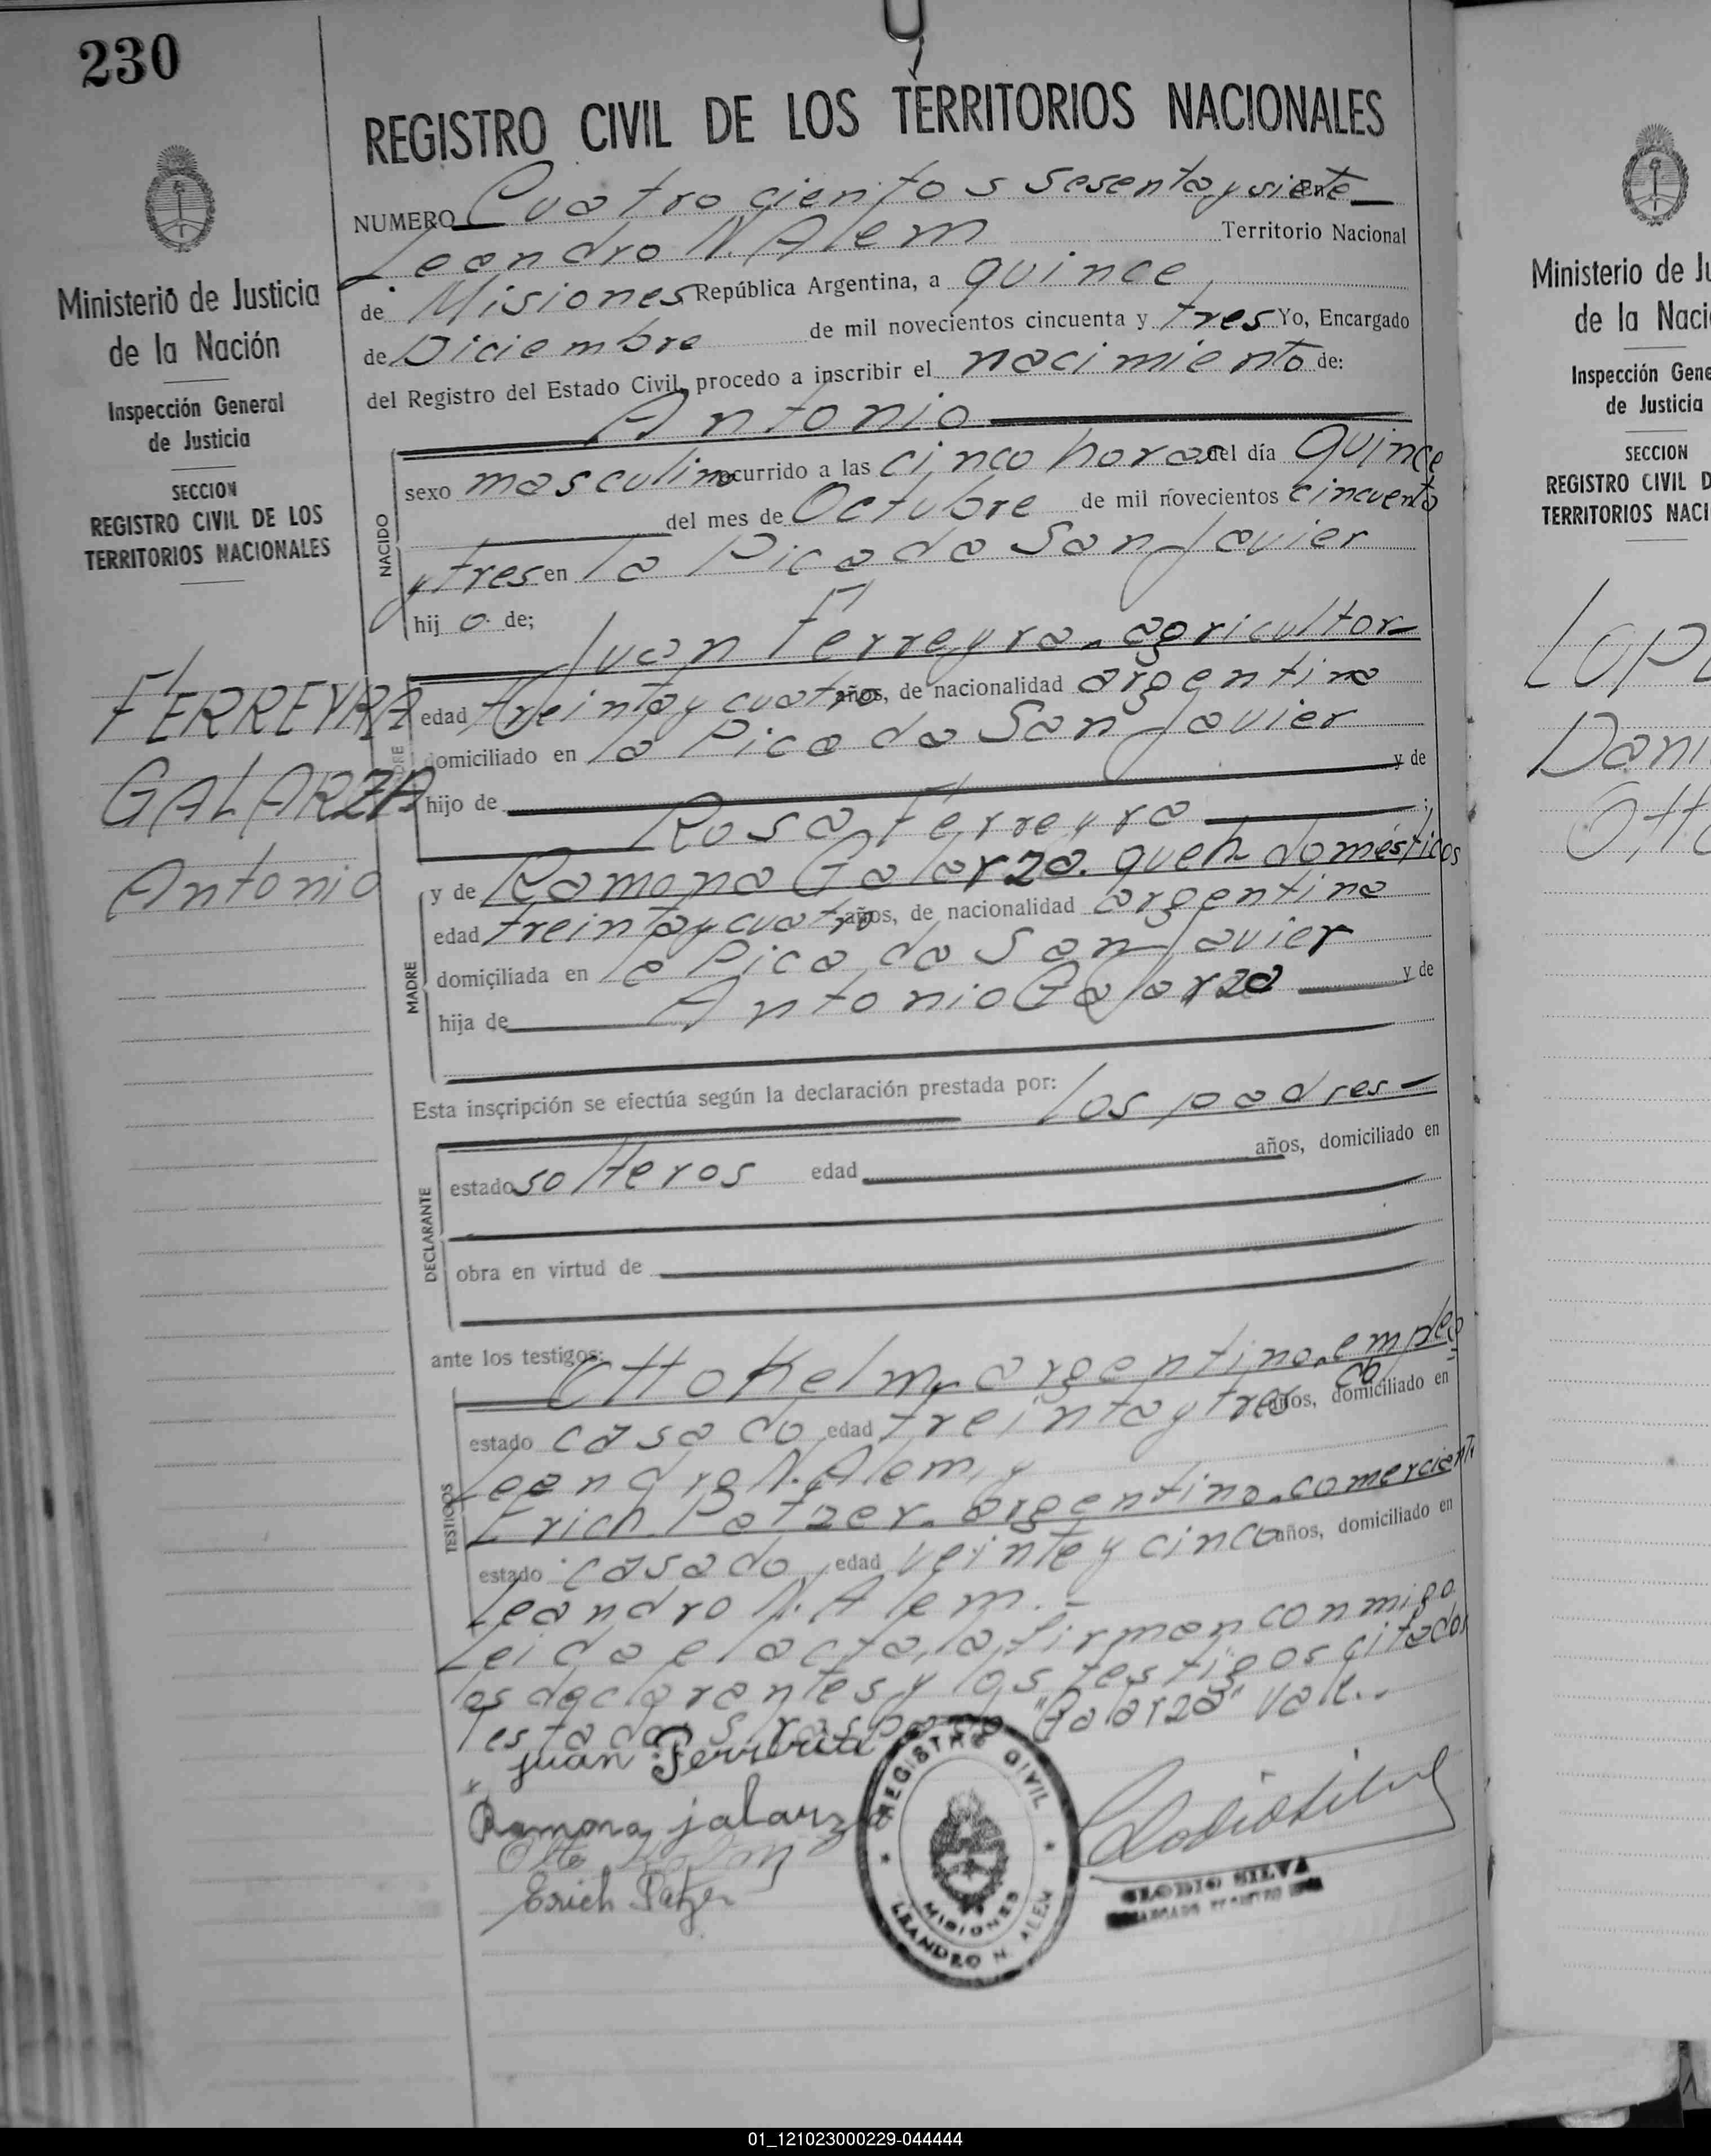 230
REGISTRO CIVIL DE LOS TERRITORIOS NACIONALES
NUMERO Cuatrocientos sesenta y siete En
Leandro N. Alem Territorio Nacional
de Misiones República Argentina, a quince
de Diciembre de mil novecientos cincuenta y tres Yo, Encargado
del Registro del Estado Civil, procedo a inscribir el nacimiento de:
Antonio
NACIDO
sexo masculino ocurrido a las cinco horas del día Quince
del mes de Octubre de mil novecientos cincuenta
y tres en la Picada San Javier
hijo de;
Juan Ferreyra. agricultor
edad treinta y cuatro años, de nacionalidad argentina
domiciliado en la Picada San Javier
hijo de y de
Rosa Ferreyra ;
MADRE
y de Ramona Galarza. queh domésticos
edad treinta y cuatro años, de nacionalidad argentina
domiciliada en la Picada San Javier
hija de Antonio Galarza y de
Esta inscripción se efectúa según la declaración prestada por: los padres
DECLARANTE
estado solteros edad años, domiciliado en
obra en virtud de
ante los testigos:
Otto Kelm, argentino. emplea
do
TESTIGOS
estado casado edad treinta y tres años, domiciliado en
Leandro N. Alem, y
Erich Patzer. argentino. comerciante
estado casado edad veinte y cinco años, domiciliado en
Leandro N. Alem.-
Leida el acta, la firman conmigo
los declarantes y los testigos citados
Testado: S/ raspado "Galarza" Vale..
juan
Ramona jalarza
Otto Kelm
Erich Patzer
REGISTRO CIVIL
MISIONES
LEANDRO N. ALEM
CLODIO SILVA
Ministerio de Justicia
de la Nación
Inspección General
de Justicia
SECCION
REGISTRO CIVIL DE LOS
TERRITORIOS NACIONALES
FERREYRA
GALARZA
Antonio
Ministerio de Ju
de la Naci
Inspección Gene
de Justicia
SECCION
REGISTRO CIVIL D
TERRITORIOS NACI
LOP
Dani
Otto
01_121023000229-044444